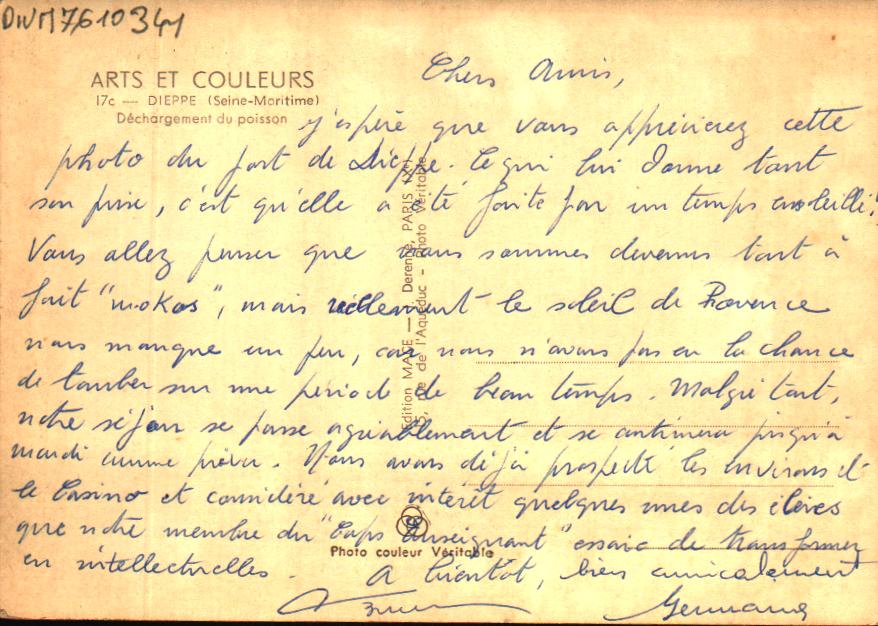 DWM7610341
ARTS ET COULEURS
17c — DIEPPE (Seine-Maritime)
Déchargement du poisson
Chers Amis,
j'espère que vous apprécierez cette
photo du port de Dieppe. Ce qui lui donne tant
son prix, c'est qu'elle a été faite par un temps ensoleillé!
Vous allez penser que nous sommes devenus tout à
fait "mokos", mais réellement le soleil de Provence
nous manque un peu, car nous n'avons pas eu la chance
de tomber sur une période de beau temps. Malgré tout,
notre séjour se passe agréablement et se continuera jusqu'à
mardi comme prévu. Nous avons déjà prospecté les environs et
le Casino et considéré avec intérêt quelques unes des élèves
que notre membre du "Corps enseignant" essaie de transformer
en intellectuelles. A bientôt, bien amicalement
Germaine
Edition MAGE — Derenne, PARIS
5, rue de l'Aqueduc - Photo Véritable
Photo couleur Véritable